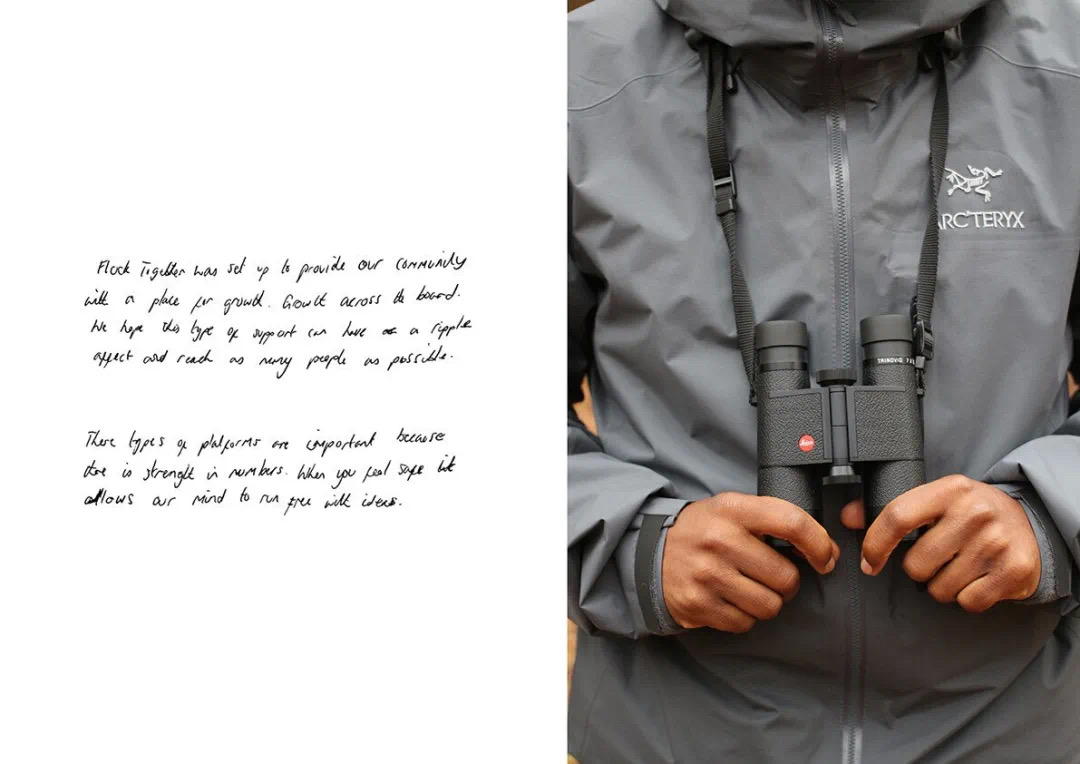 Flock Together was set up to provide our community
with a place for growth. Growth across the board.
We hope this type of support can have a ripple
affect and reach as many people as possible.
These types of platforms are important because
there is strength in numbers. When you feel safe it
allows our mind to run free with ideas.
ARC'TERYX
TRINOVID 7x
Leica